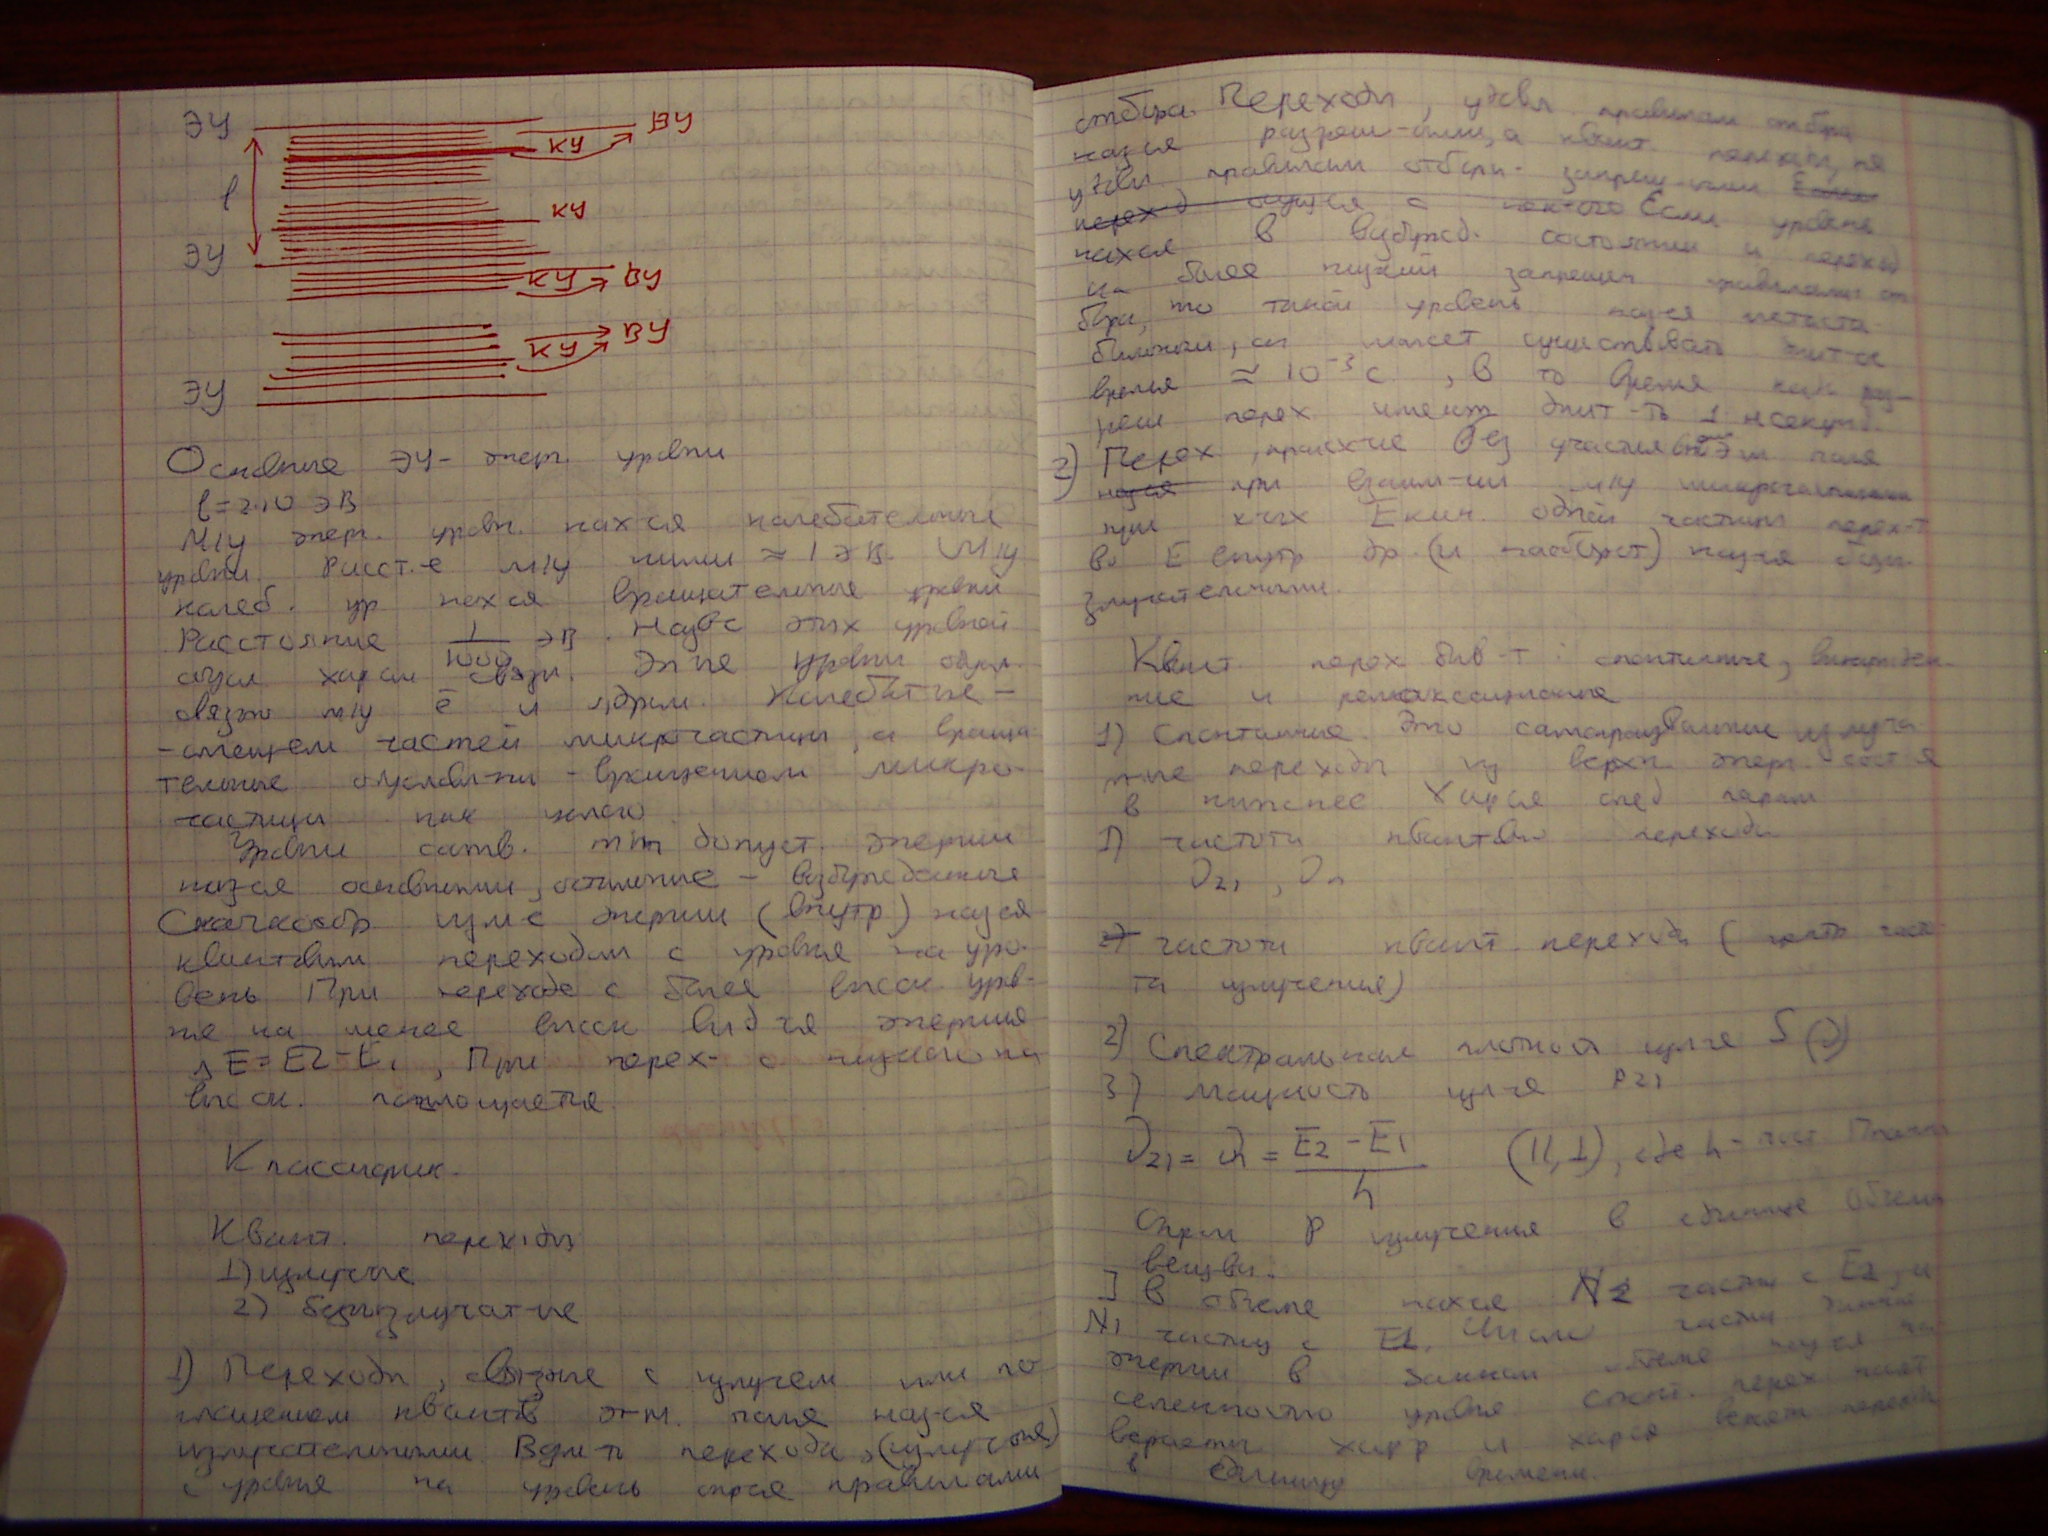 ЭУ
ВУ
КУ
l
КУ
ЭУ
КУ ВУ
ВУ
КУ
ЭУ
Основные ЭУ - энерг. уровни
l = 2-10 эВ
М/у энерг. уровн. нах-ся колебательные
уровни. Расст-е м/у ними ≈ 1 эВ. М/у
колеб. ур нах-ся вращательные уровни
Расстояние 1/1000 эВ. Назв-е этих уровней
связи. Эн-ие уровни обусл.
связью м/у ē и ядром. Колебат-ые -
- смещением частей микрочастицы, а враща
тельные обусловл-ны - вращением микро-
частицы как целого
Уровни соотв. min допуст. энергии
наз-ся основными, остальные - возбужденные
Скачкообр изм-е энергии (внутр) наз-ся
квантовым переходом с уровня на уро-
вень При переходе с более высок уров-
ня на менее высок выд-ся энергия
ΔE = E2 - E1, При перех- с низкого на
высок. поглощается
Классифик.
Квант. переходы
1) излуч-ые
2) безизлучат-ые
1) Переходы, связ-ные с излучем или по
глощением квантов эл-м. поля наз-ся
излучательными Возм-ть перехода (излуч-ого)
с уровня на уровень опр-ся правилами
отбора. Переходы, удовл правилам отбора
наз-ся разреш-ыми, а квант. переходы, не
удовл правилам отбора - запрещ-ыми
перех-д Если уровень
нах-ся в возбужд. состоянии и переход
на более низкий запрещен правилами от
бора, то такой уровень наз-ся метаста
бильным, он может существовать длит-ое
время ≈ 10⁻³ с, в то время как раз-
реш перех имеют длит-ть 1 нсекунд.
2) Перех, происх-ие без участия эл-м поля
наз-ся при взаим-ии м/у микрочастицами
при к-ых Eкин. одной частицы перех-т
во E внутр др. (и наоборот) наз-ся безы
злучательными.
Квант. перех быв-т: спонтанные, вынужден-
ные и релаксационные
1) Спонтанные. Это самопроизвольные излуча
т-ые переходы из верхн. энерг. сост-я
в нижнее Хар-ся след парам
1) частота квантового перехода
ν21, νл
2) частота квант. перехода ( центр часто
та излучения)
2) Спектральная плотность излуч-я S(ν)
3) мощность излуч-я P21
ν21 = νл = E2 - E1 / h (11,1), где h - пост Планка
Опрем P излучения в единице объема
вещ-ва.
] В объеме нах-ся N2 частиц с E2, и
N1 частиц с E1. Число частиц данной
энергии в данном объеме наз-ся на
селенностью уровня Спонт. перех носят
вероятн хар-р и хар-ся вероят перехода
в единицу времени.